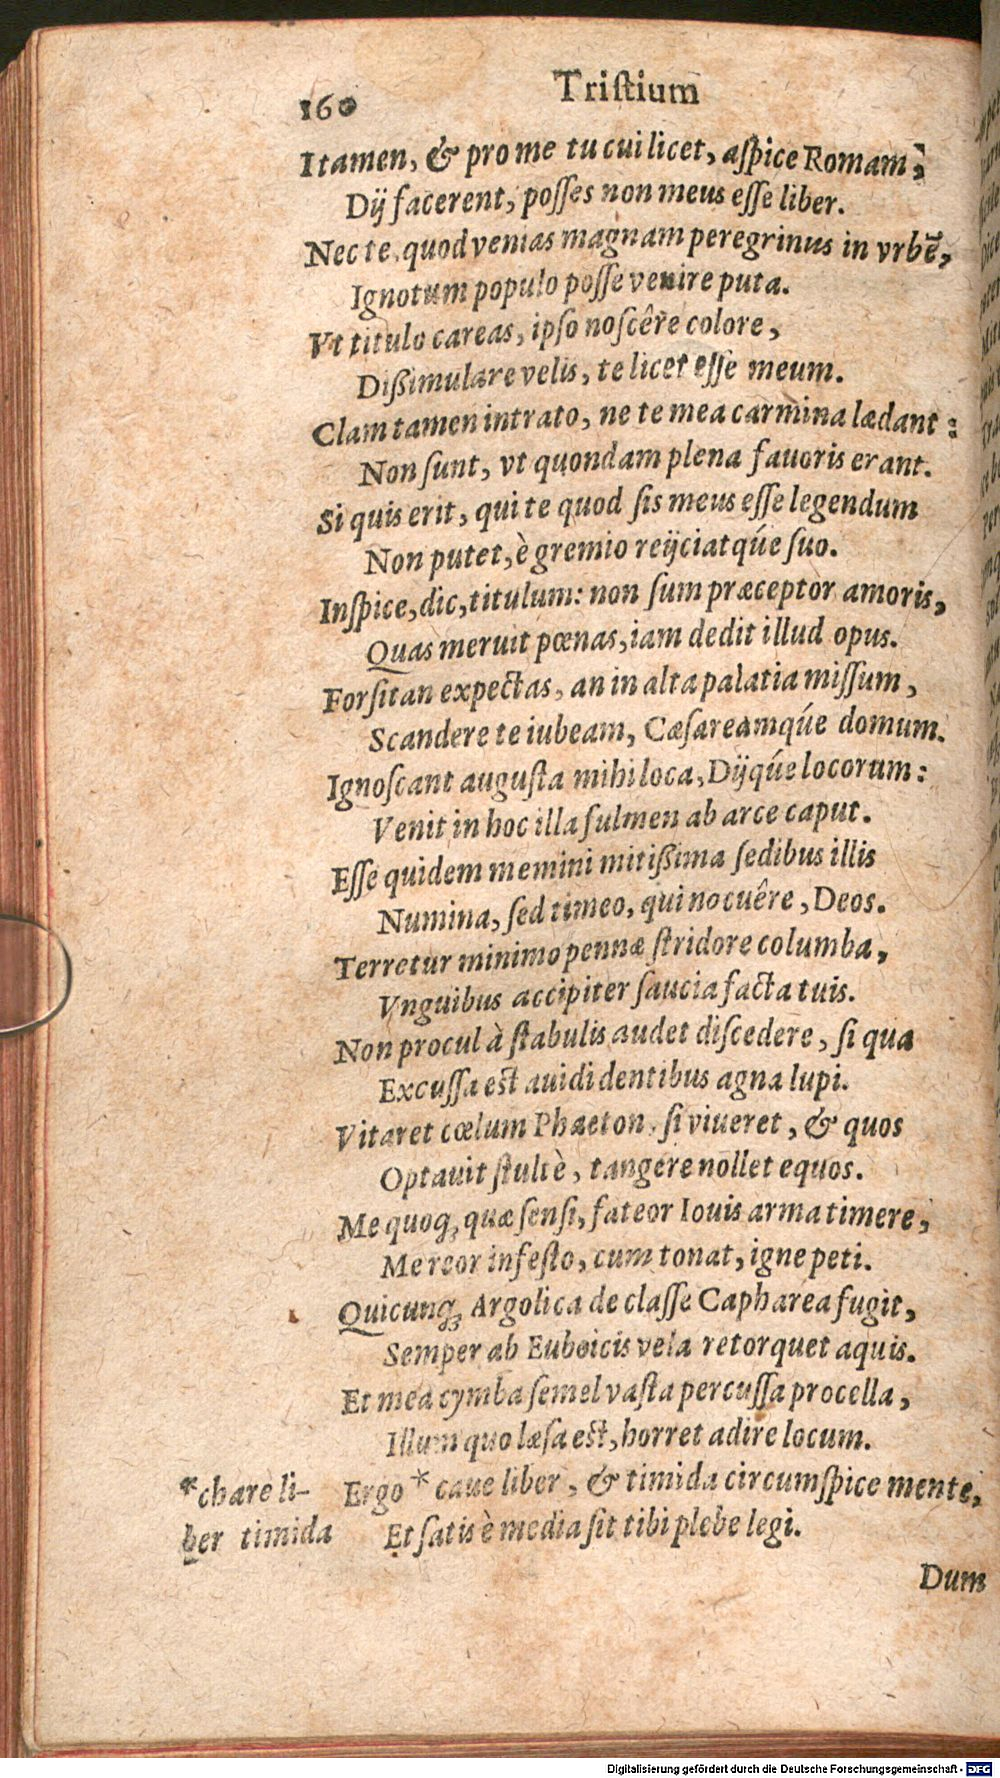 160 Tristium
I tamen, & pro me tu cui licet, aſpice Romam;
Dij facerent, poſſes non meus eſſe liber.
Nec te, quod venias magnam peregrinus in vrbē,
Ignotum populo poſſe venire puta.
Vt titulo careas, ipſo noſcêre colore,
Dißimulare velis, te licet eſſe meum.
Clam tamen intrato, ne te mea carmina lædant:
Non ſunt, vt quondam plena fauoris erant.
Si quis erit, qui te quod ſis meus eſſe legendum
Non putet, è gremio reijciatq́ue ſuo.
Inſpice, dic, titulum: non ſum præceptor amoris,
Quas meruit pœnas, iam dedit illud opus.
Forſitan expectas, an in alta palatia miſſum,
Scandere te iubeam, Cæſareamq́ue domum.
Ignoſcant auguſta mihi loca, Dijq́ue locorum:
Venit in hoc illa fulmen ab arce caput.
Eſſe quidem memini mitißima ſedibus illis
Numina, ſed timeo, qui nocuêre, Deos.
Terretur minimo pennæ ſtridore columba,
Vnguibus accipiter ſaucia facta tuis.
Non procul à ſtabulis audet diſcedere, ſi qua
Excuſſa est auidi dentibus agna lupi.
Vitaret cœlum Phaeton, ſi viueret, & quos
Optauit ſtultè, tangere nollet equos.
Me quoq;, quæ ſenſi, fateor Iouis arma timere,
Me reor infeſto, cum tonat, igne peti.
Quicunq;, Argolica de claſſe Capharea fugit,
Semper ab Euboicis vela retorquet aquis.
Et mea cymba ſemel vaſta percuſſa procella,
Illum quo læſa est, horret adire locum.
*chare li- Ergo * caue liber, & timida circumſpice mente,
ber timida Et ſatis è media ſit tibi plebe legi.
Dum
Digitalisierung gefördert durch die Deutsche Forschungsgemeinschaft - DFG